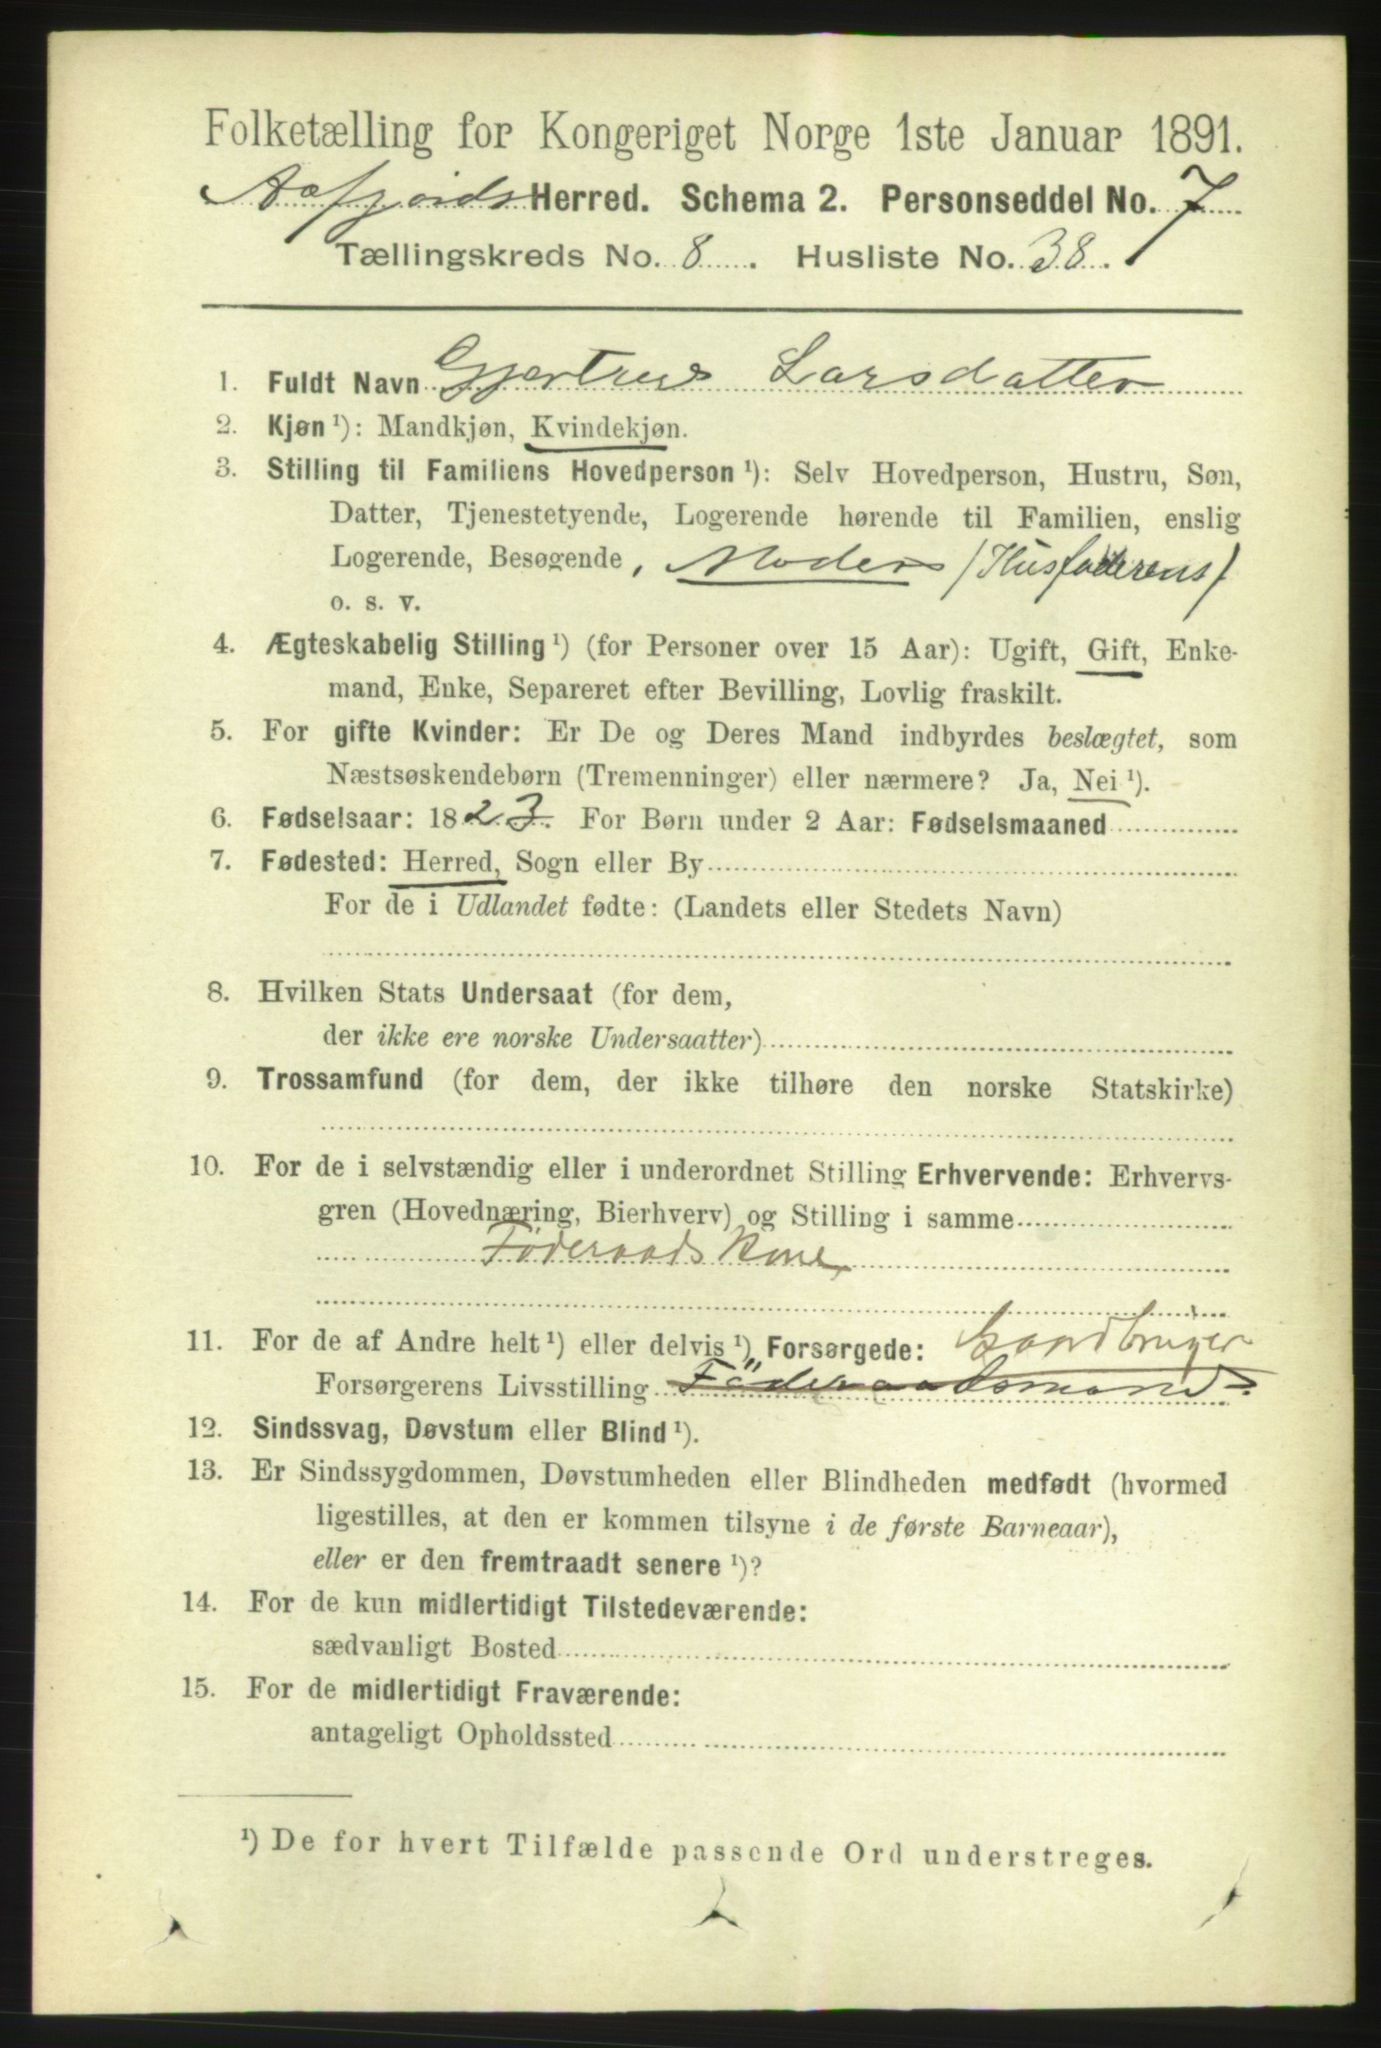 Folketælling for Kongeriget Norge 1ste Januar 1891.
Aafjords Herred. Schema 2. Personseddel No. 7
Tællingskreds No. 8. Husliste No. 38.
1. Fuldt Navn Gjertrud Larsdatter
2. Kjøn ¹): Mandkjøn, Kvindekjøn.
3. Stilling til Familiens Hovedperson ¹): Selv Hovedperson, Hustru, Søn,
Datter, Tjenestetyende, Logerende hørende til Familien, enslig
Logerende, Besøgende, Moder (Husfaderens)
o. s. v.
4. Ægteskabelig Stilling ¹) (for Personer over 15 Aar): Ugift, Gift, Enke-
mand, Enke, Separeret efter Bevilling, Lovlig fraskilt.
5. For gifte Kvinder: Er De og Deres Mand indbyrdes beslægtet, som
Næstsøskendebørn (Tremenninger) eller nærmere? Ja, Nei ¹).
6. Fødselsaar: 1823. For Børn under 2 Aar: Fødselsmaaned
7. Fødested: Herred, Sogn eller By
For de i Udlandet fødte: (Landets eller Stedets Navn)
8. Hvilken Stats Undersaat (for dem,
der ikke ere norske Undersaatter)
9. Trossamfund (for dem, der ikke tilhøre den norske Statskirke)
10. For de i selvstændig eller i underordnet Stilling Erhvervende: Erhvervs-
gren (Hovednæring, Bierhverv) og Stilling i samme
Föderaads Kone
11. For de af Andre helt ¹) eller delvis ¹) Forsørgede: Gaardbruger
Forsørgerens Livsstilling Föderaadsmand
12. Sindssvag, Døvstum eller Blind ¹).
13. Er Sindssygdommen, Døvstumheden eller Blindheden medfødt (hvormed
ligestilles, at den er kommen tilsyne i de første Barneaar),
eller er den fremtraadt senere ¹)?
14. For de kun midlertidigt Tilstedeværende:
sædvanligt Bosted
15. For de midlertidigt Fraværende:
antageligt Opholdssted
¹) De for hvert Tilfælde passende Ord understreges.